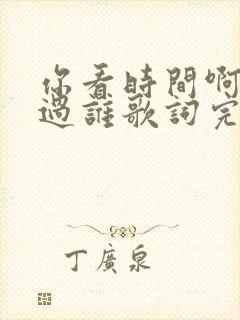 你看時間啊
過誰歌詞完
丁廣泉